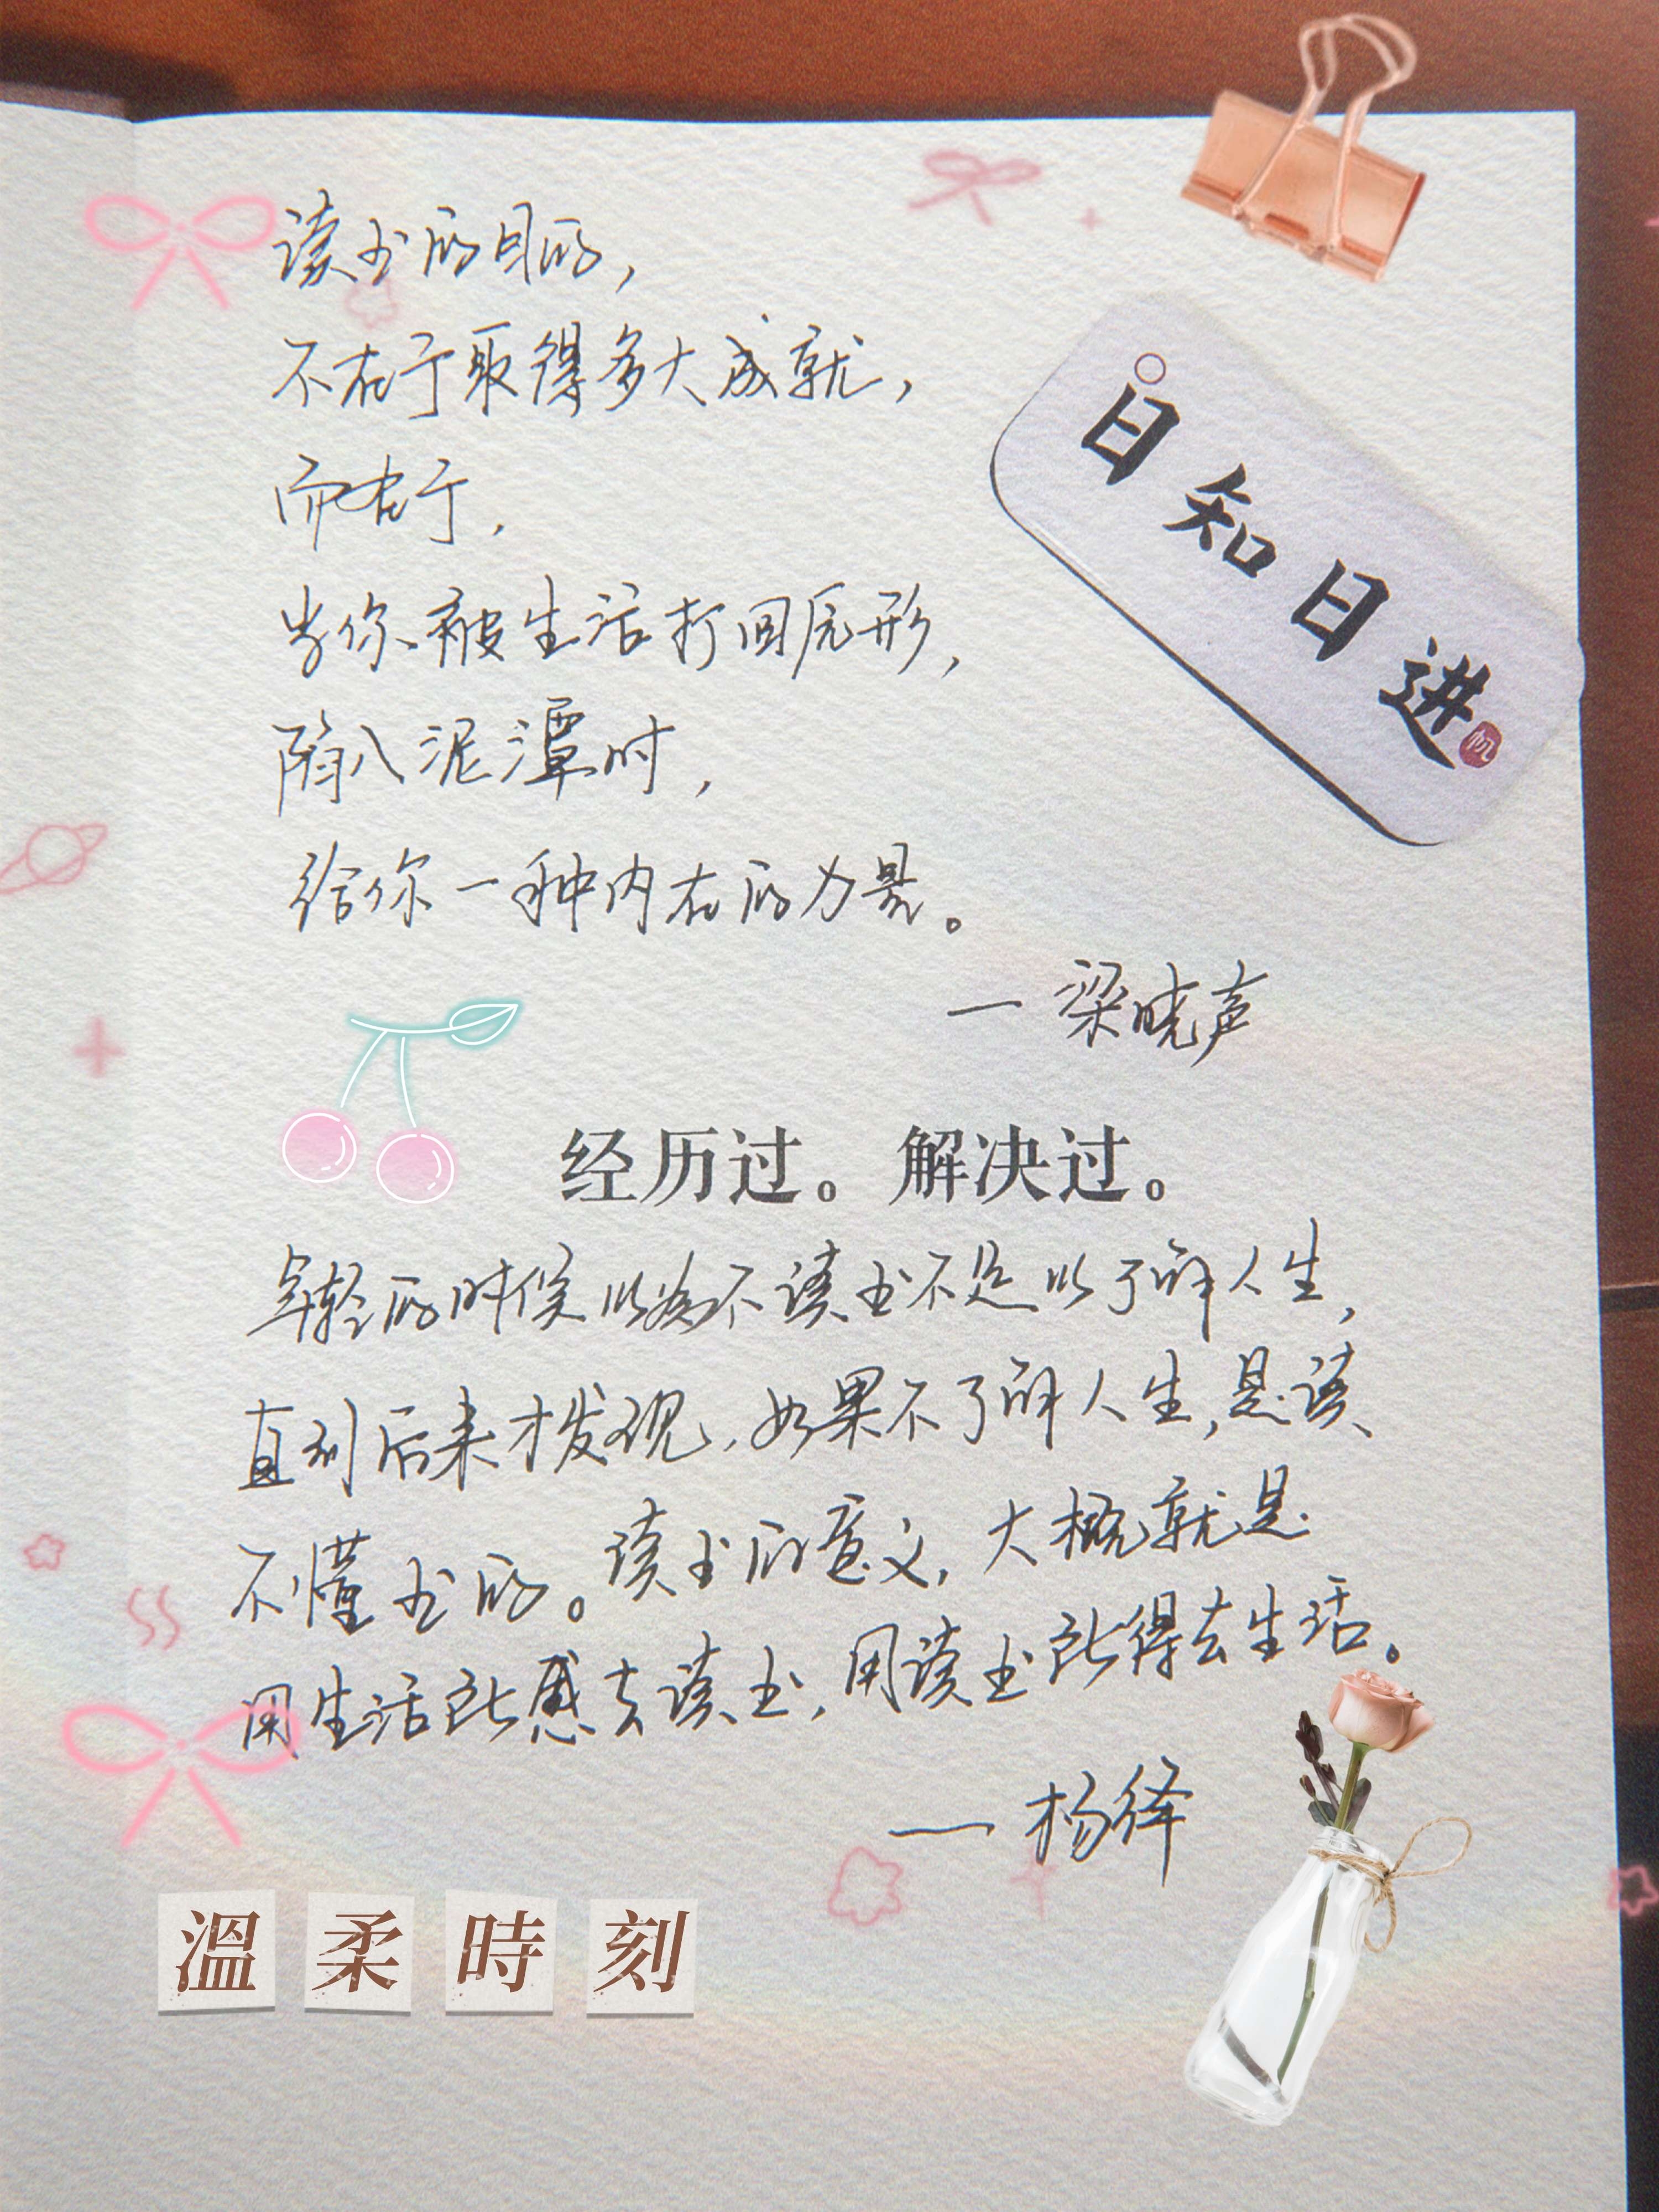 读书的目的，
不在于取得多大成就，
而在于，
当你被生活打回原形，
陷入泥潭时，
给你一种内在的力量。
一梁晓声
日知日进
帆
经历过。解决过。
年轻的时候以为不读书不足以了解人生，
直到后来才发现，如果不了解人生，是读
不懂书的。读书的意义，大概就是
用生活所感去读书，用读书所得去生活。
一杨绛
溫柔時刻